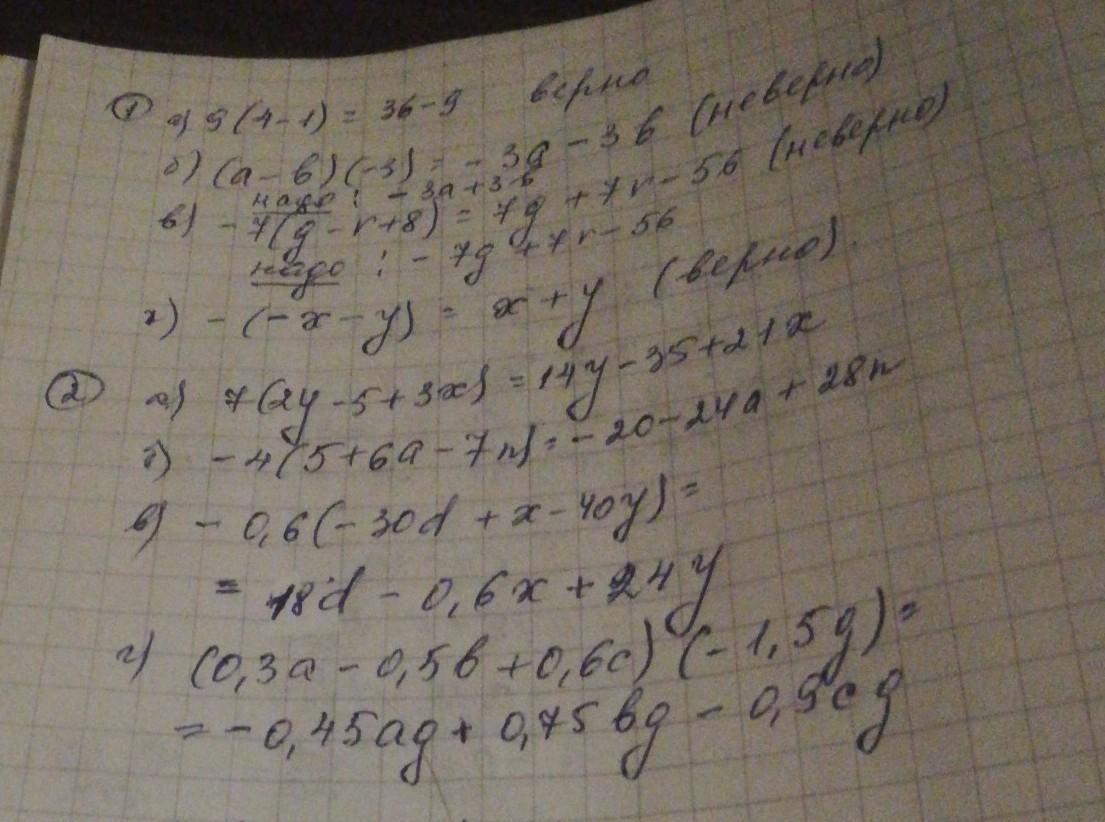 ① а) 9(4-1) = 36-9 верно
б) (а-в)(-3) = -3а-3в (неверно)
надо: -3а+3в
в) -7(g-r+8) = 7g+7r-56 (неверно)
надо: -7g+7r-56
г) -(-x-y) = x+y (верно).
② а) 7(2y-5+3x) = 14y-35+21x
б) -4(5+6а-7n) = -20-24а+28n
в) -0,6(-30d+x-40y) =
= 18d-0,6x+24y
г) (0,3а-0,5в+0,6с)(-1,5g) =
= -0,45аg+0,75вg-0,9сg